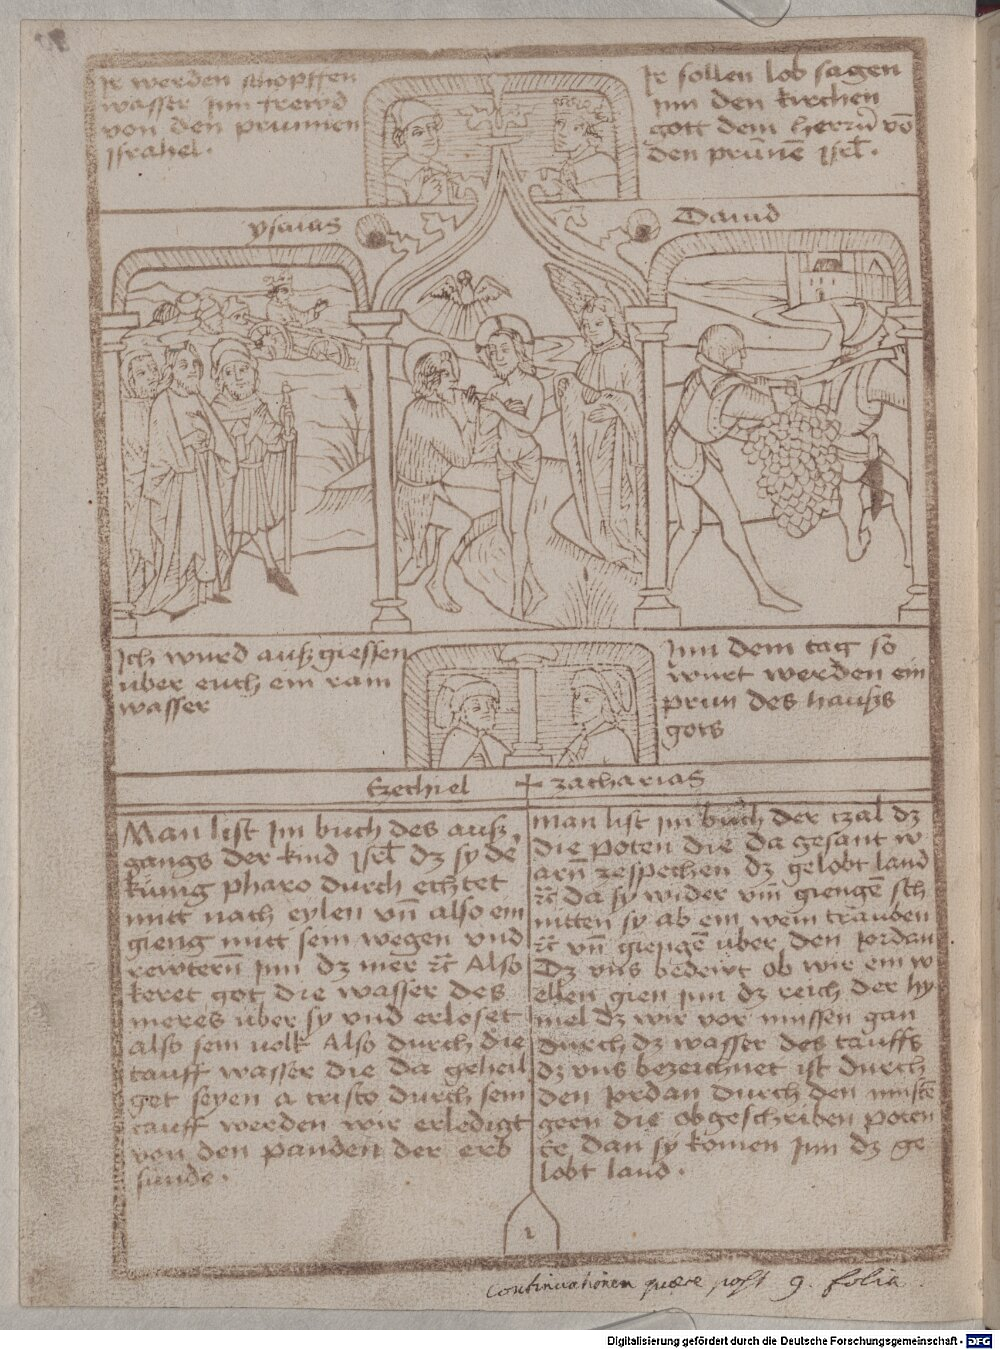 Ir werden schopffen
wasser Inn frewd
von den prunnen
israhel .
Ir sollen lob sagen
Inn den kirchen
gott dem herrn̄ vō
den prūnē isrl̄ .
ysaias
Dauid
Ich wurd auß giessen
uber euch ein rain
wasser
Inn dem tag so
wurt werden ein
prun des haußs
gots
Ezechiel
zacharias
Man list Im buch des auß
gangs der kind isrl̄ dz sy dē
kunig pharo durch echtet
mitt nach eylen vn̄ also ein
gieng mitt sein wegen vnd
rewtern̄ Inn dz mer ⁊c̄ Also
keret got die wasser des
meres uber sy vnd erloset
also sein uolk Also durch die
tauff wasser die da geheil
get seyen a cristo durch sein
tauff werden wir erledigt
von den panden der erb
sunde .
man list Im buch der tzal dz
die poten die da gesant w
arn̄ zespechen dz gelobt land
⁊c̄ da sy wider vm̄ giengē sch
nitten sy ab ein wein trauben
⁊c̄ vn̄ giengē uber den Iordan
Dz vns bedewt ob wir ein w
ellen gien Inn dz reich der hy
mel dz wir vor mussen gan
durch dz wasser des tauffs
dz vns bezeichnet ist durch
den Iordan durch den musten
geen die obgeschriben poten
ee dan sy komen Inn dz ge
lobt land .
Continuationem quaere post 9. folia .
Digitalisierung gefördert durch die Deutsche Forschungsgemeinschaft - DFG